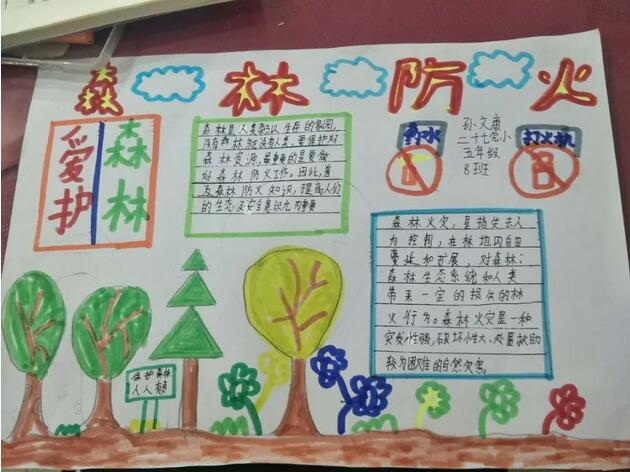 森林防火
爱护
森林
森林是人类赖以生存的家园,
没有森林就没有人类,要保护好
森林资源,最重要的是要做
好森林防火工作。因此,普
及森林防火知识,提高人们
的生态及安全意识尤为重要
孙文康
二十七完小
五年级
8班
打火机
森林火灾,是指失去人
为控制,在林地内自由
蔓延和扩展,对森林;
森林生态系统和人类
带来一定的损失的林
火行为。森林火灾是一种
突发性强,破坏性大、处置救助
较为困难的自然灾害。
保护森林
人人有责